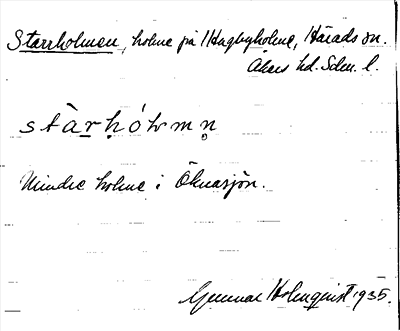 Starrholmen, holme på Hagbyholme, Härads sn.
Åkers hd. Sdm. l.
stàrhólmn
Mindre holme i Öknasjön.
Gunnar Holmquist 1935.